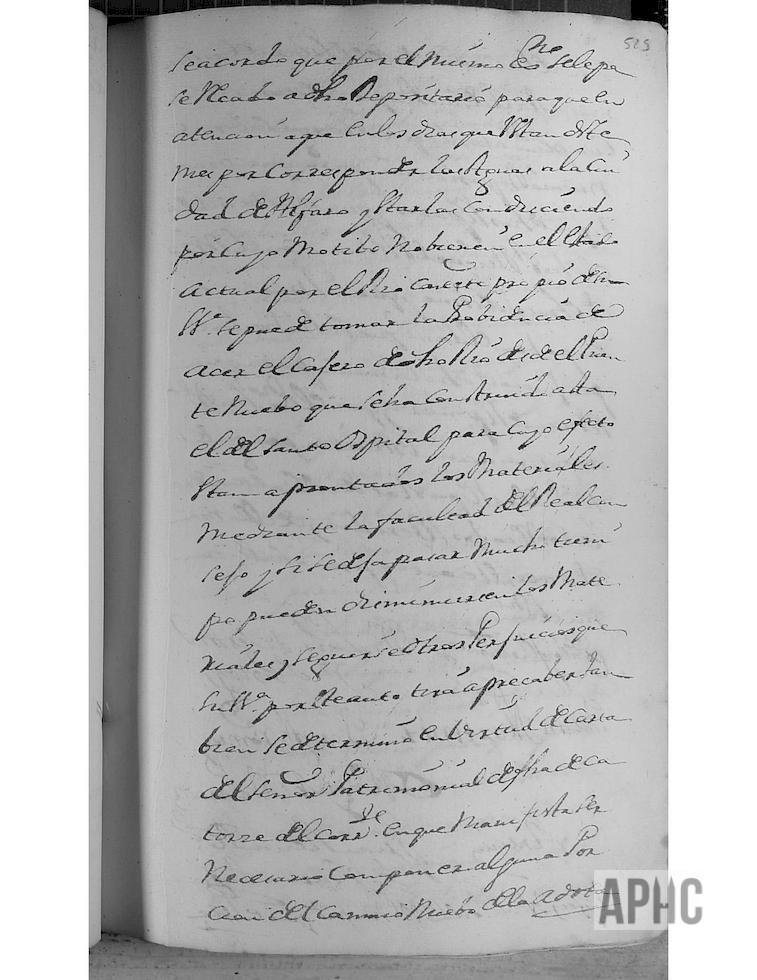 525
se acordo que por el mismo Essno se le pa
se Recado a dho Depositario para que en
atencion a que en los dias que Estan diste
mes por Corresponder las Aguas a la Ciu
dad de Alfaro y Estarlas Conduciendo
por Cuyo Motibo no bienen en el Estado
actual por el Rio Canete propio de su
Sª. se puede tomar la Probidencia de
acer el Casero de dho Rio desde el Puen
te Nuebo que se ha Construido asta
el del Santo Ospital para Cuyo efecto
Estan aprontados los Materiales
mediante la facultad del Real con
sejo y si se deja pasar mucho tiem
po pueden diminuirse los Mate
riales y seguirse otros Perjuicios que
su Sª por Este auto tira a precaber tam
bien se determino en virtud de Carta
del Señor Patrimonial de fha de ca
torze del Corrte. en que Manifista ser
Necesario Componer alguna Por
cion del Camino Nuebo de la
APHC